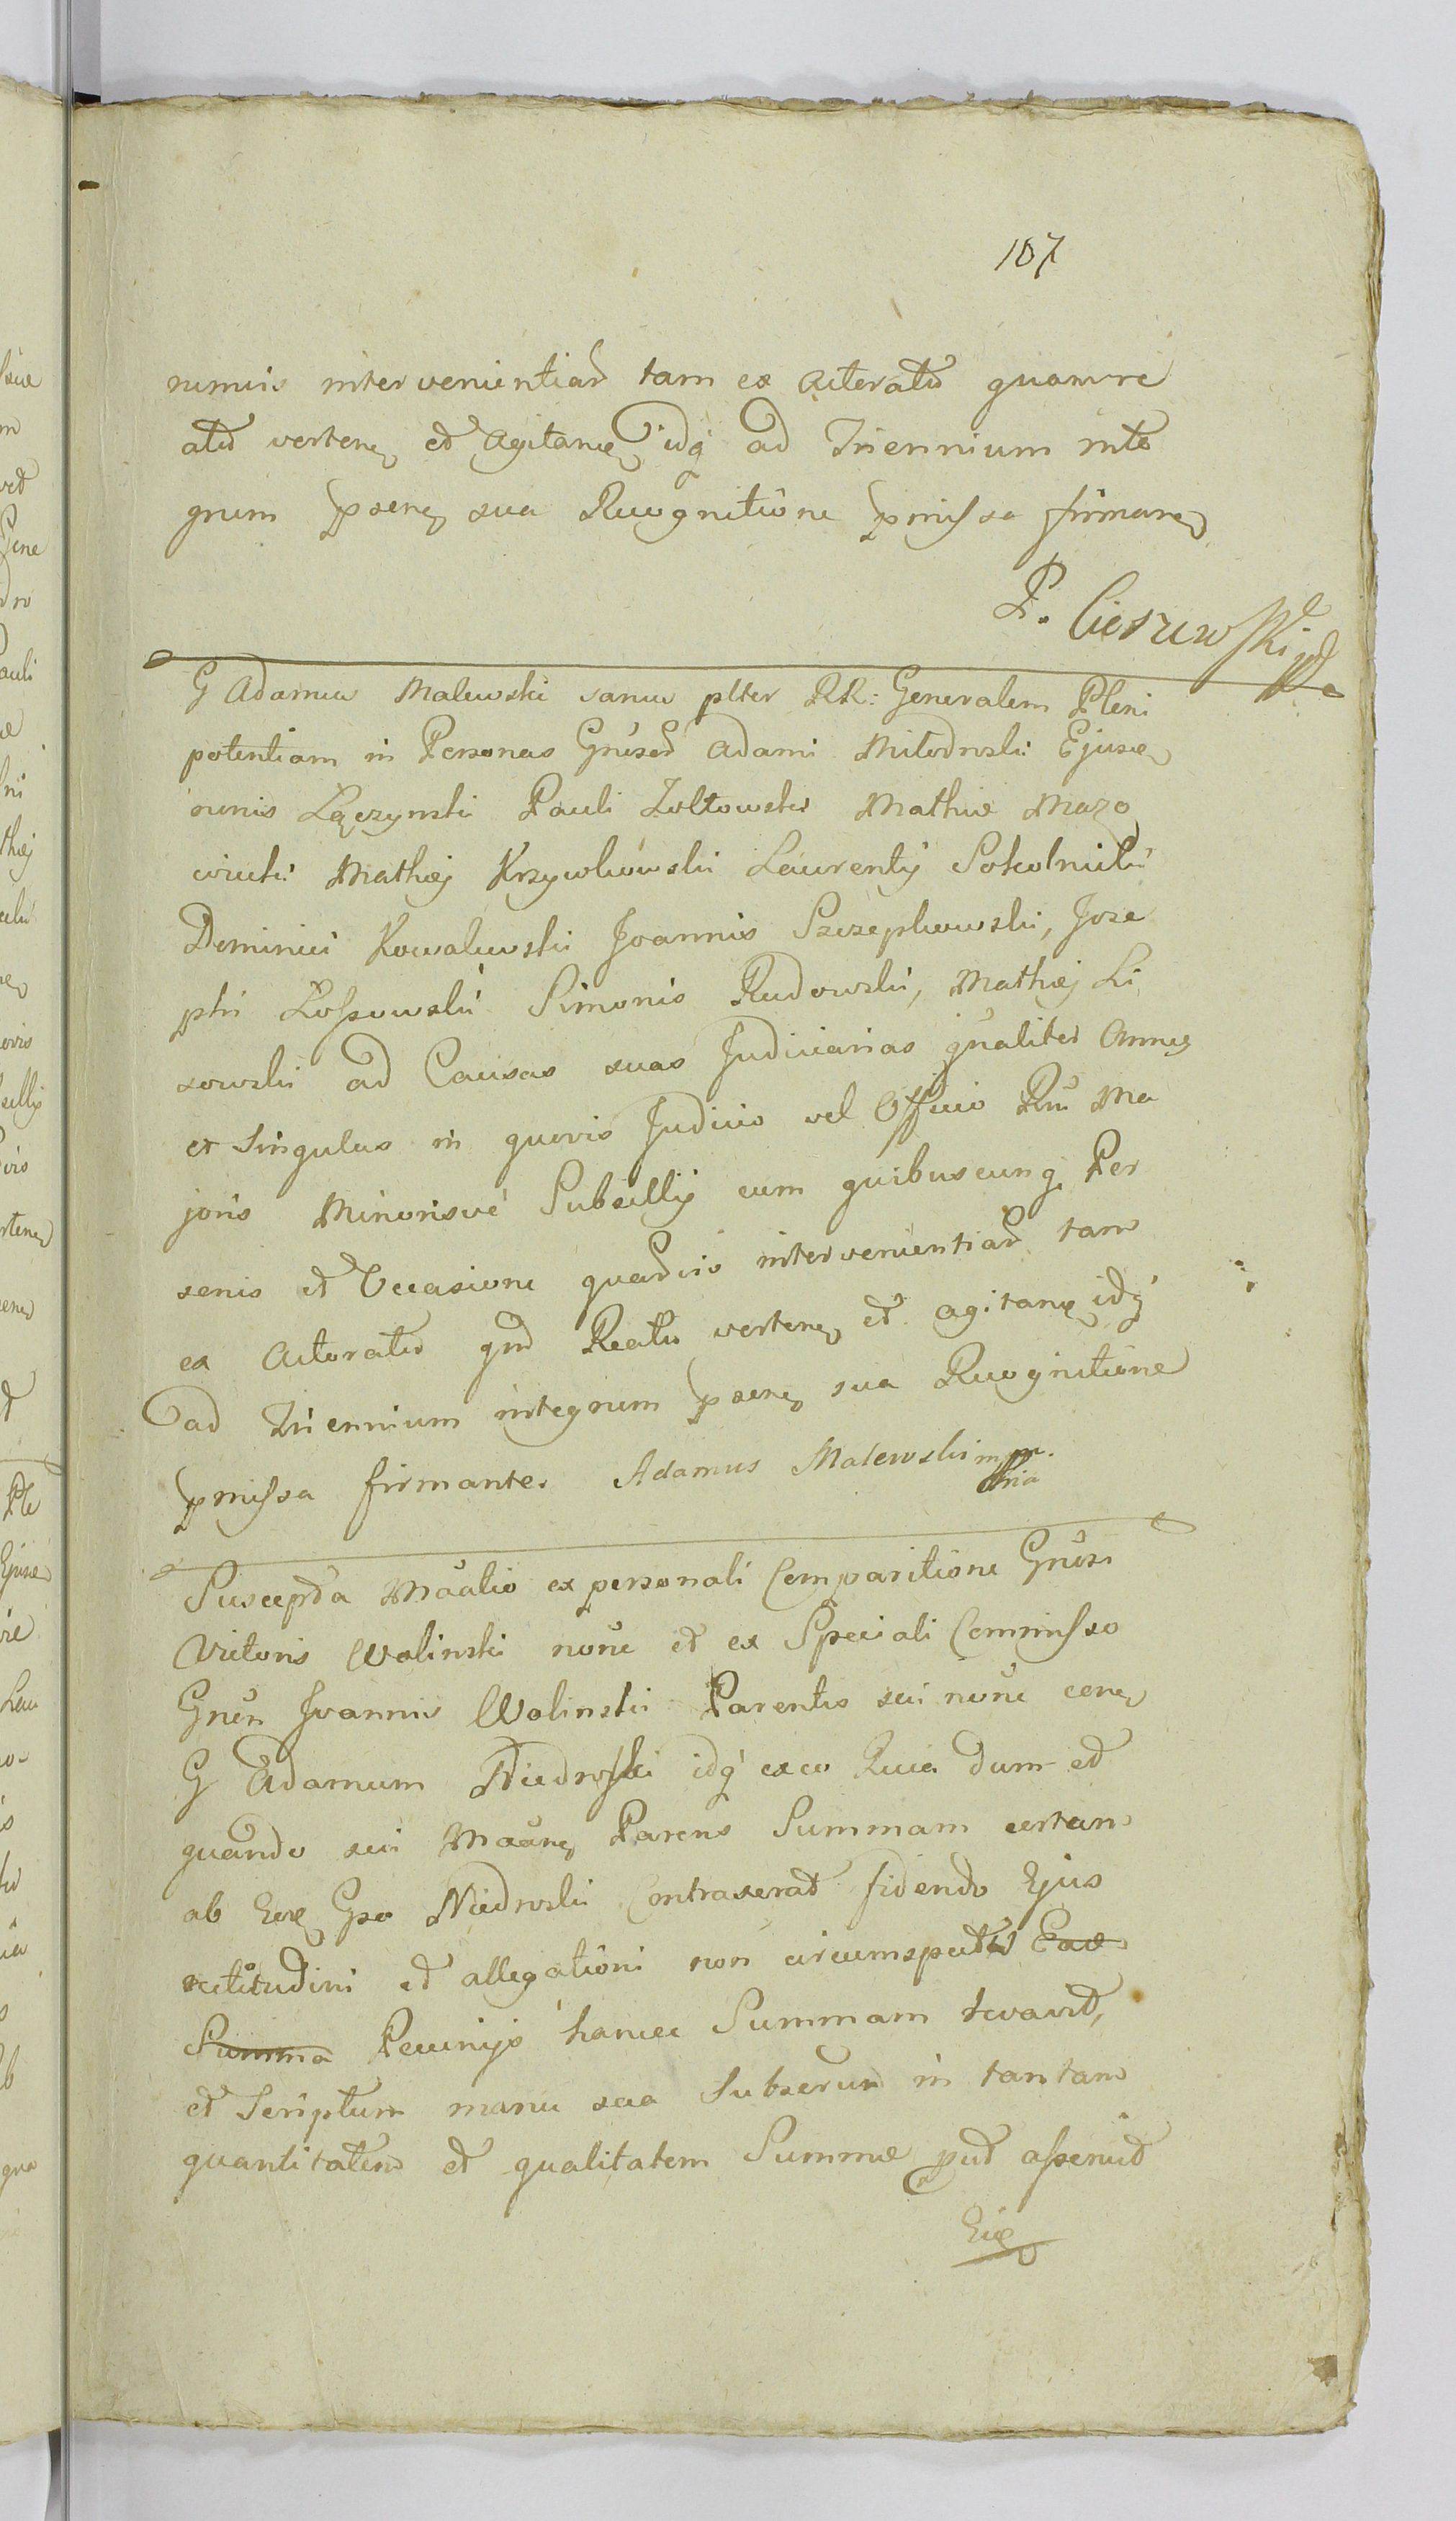 107
nimuis intervenientiad tam ex Actoratu quam re
atu verten et Agitan idq ad Triennium inte
grum psen sua Recognitione pmissa firman
P. Cieszewski
G Adamus Malewski sanus plter RR: Generalem Pleni
potentiam in Personas Gnrosod Adami Mitodroski Ejusae
numis Łączynski Pauli Zoltowski Mathiæ Mazo
wiecki Mathæj Krzywkowski Laurentÿ Sokolnicki
Dominici Kowalewski Joannis Szczepkowski, Jose
phi Łossowski Simonis Rudowski, Mathæj Li
sowski ad Causas suas Judiciarias gnaliter Omnes
et Singulas in quovis Judicio vel Officio Rni Ma
joris Minorisve Subsellÿ cum quibuscunq Per
sonis et Occasione quavis intervenientiad tam
ex Actoratu qm Reatu verten et agitan idq
ad Triennium integrum psen sua Recognitione
pmissa firmante. Adamus Malewski mpr.
Suscepta Maalis ex personali Comparitione Gnrosi
Victoris Wolinski noñe et ex Speciali Commisso
Gnrosi Joannis Wolinski Parentis sui noñe con
G Adamum Niedroski idq ex eo Quia dum et
quando sui Maane Parens Summam certam
ab Eod Gso Niedroski Contraxerat fidendo Ejus
rectitudini et allegationi non circumspectus Eade
Summa Pecunÿs hancce Summam levavit,
et Scriptum manu sua Subscrum in tantam
quantitatem et qualitatem Summæ put asseruit
Eid